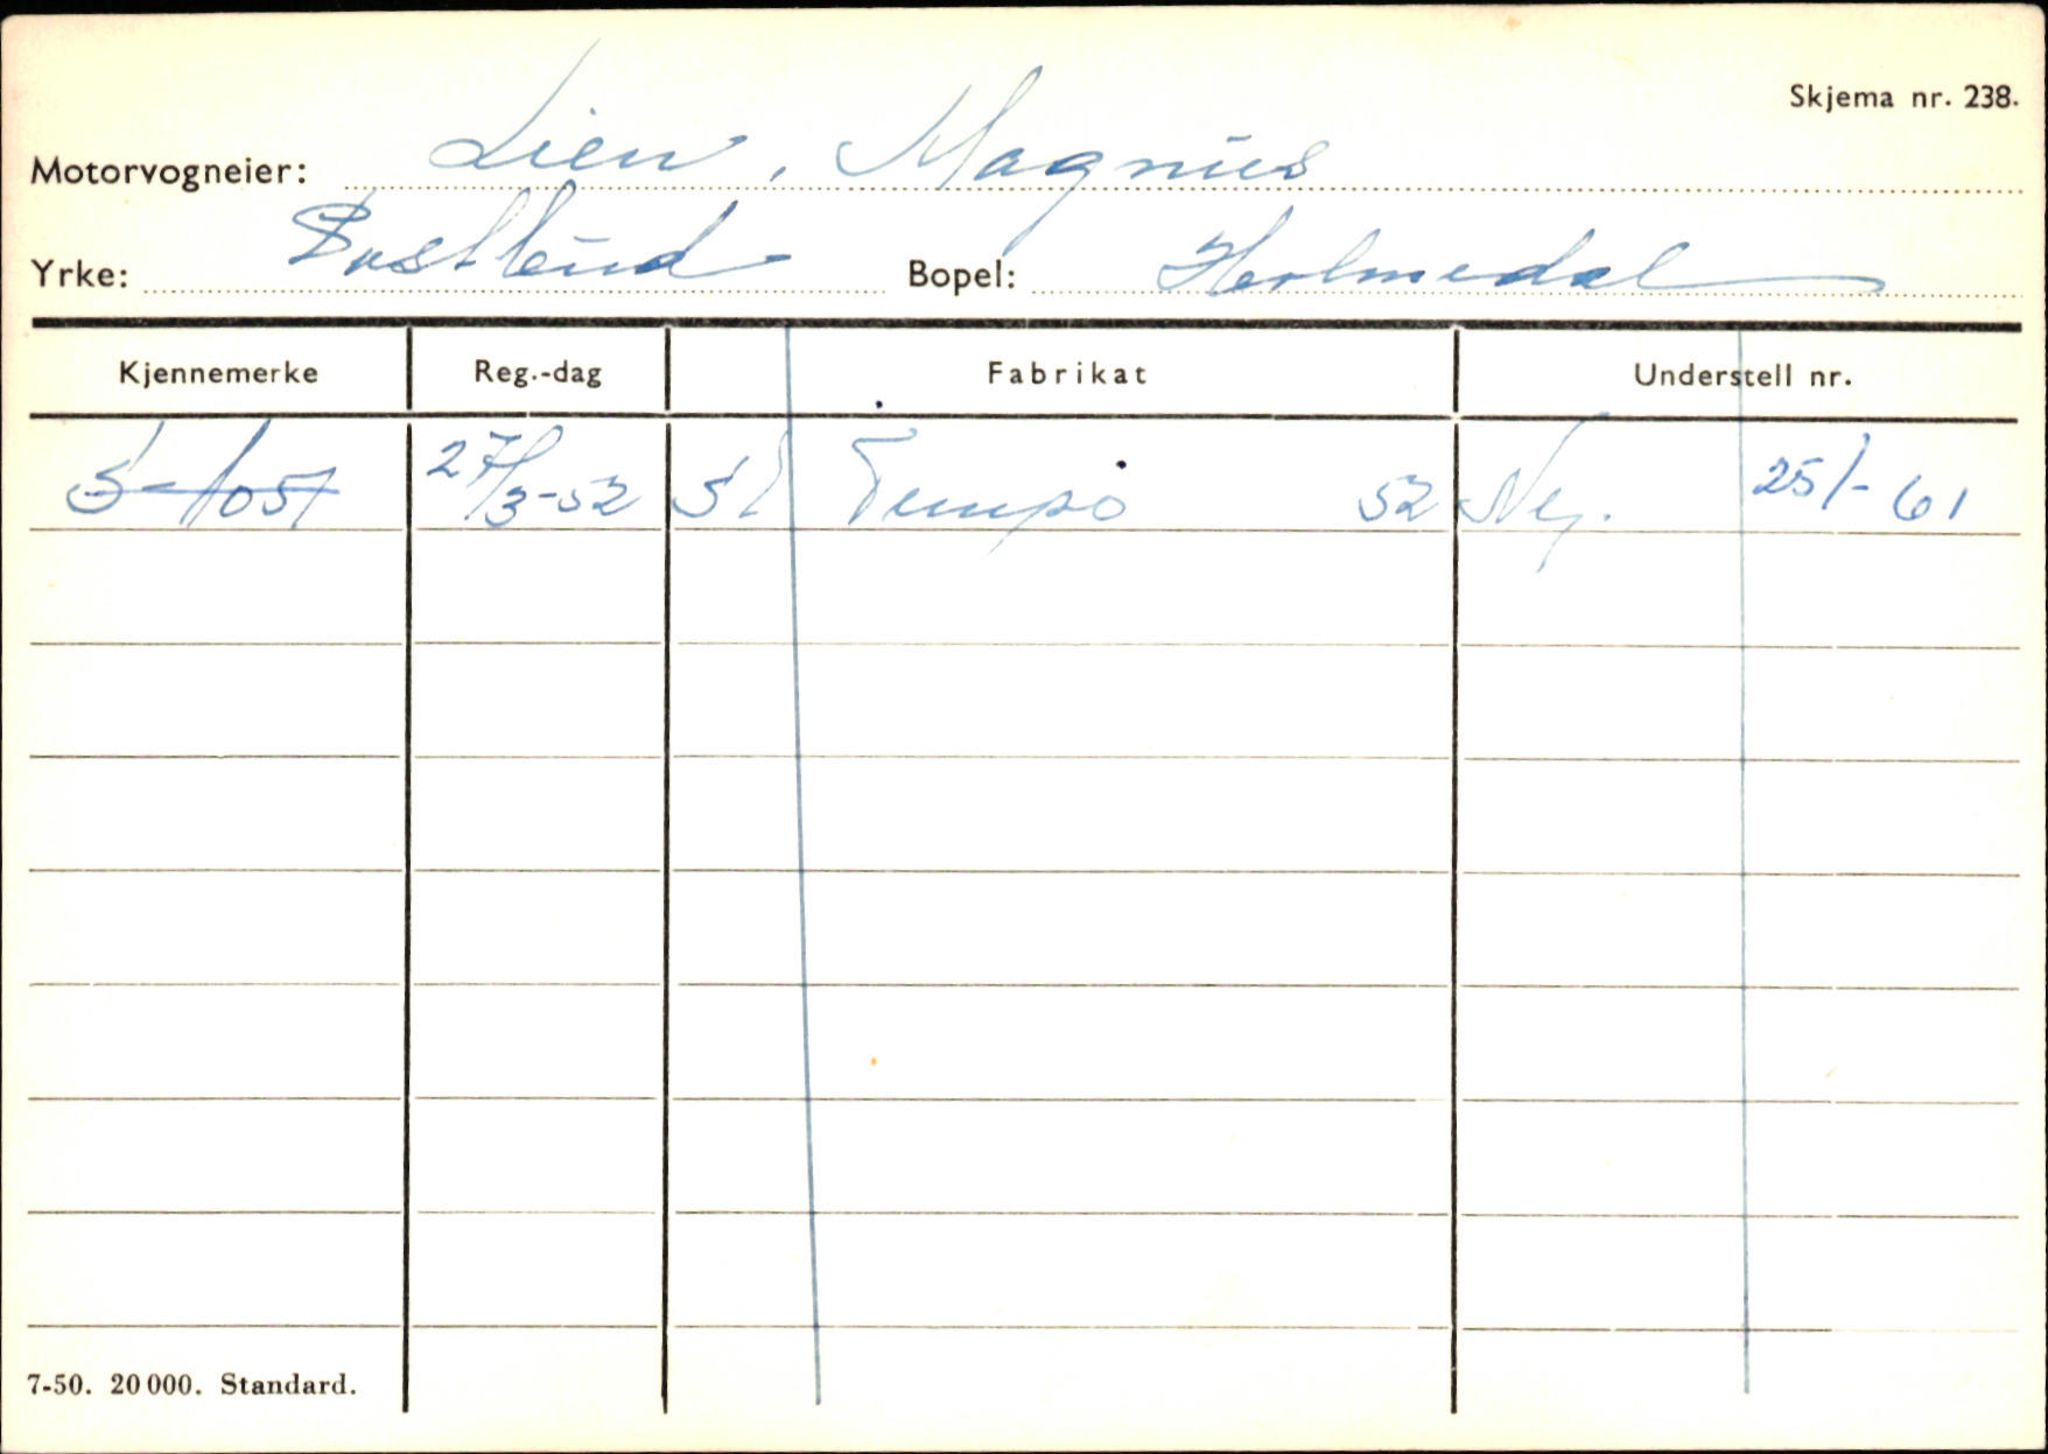 Skjema nr. 238.
Motorvogneier: Lien, Magnus
Yrke: Postbud Bopel: Holmedal
Kjennemerke Reg.-dag Fabrikat Understell nr.
S-1051 27/3-52 Tempo 52 25/- 61
7-50. 20 000. Standard.